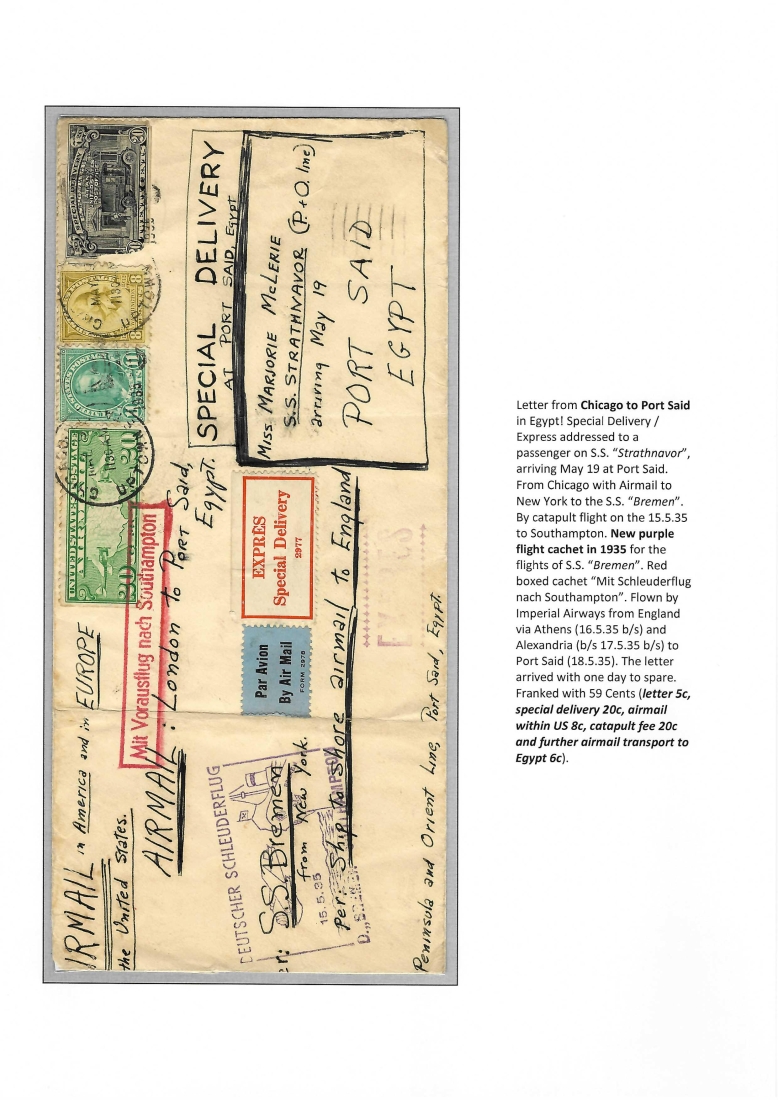 SPECIAL DELIVERY
AT PORT SAID, Egypt
Miss MARJORIE McLERIE
S.S. STRATHNAVOR (P.+O. line)
arriving May 19
PORT SAID
EGYPT
UNITED STATES POSTAGE
20
8
11
UNITED STATES POSTAGE
20
20
IRMAIL in America and in EUROPE
the United States.
Mit Vorausflug nach Southampton
AIRMAIL: London to Port Said,
Egypt.
EXPRES
Special Delivery
2977
Par Avion
By Air Mail
FORM 2978
EXPRES
DEUTSCHER SCHLEUDERFLUG
15.5.35
D. „BREMEN
er: S.S. Bremen
from New York.
Per: Ship to Shore airmail to England
Peninsula and Orient Line, Port Said, Egypt.
Letter from Chicago to Port Said
in Egypt! Special Delivery /
Express addressed to a
passenger on S.S. “Strathnavor”,
arriving May 19 at Port Said.
From Chicago with Airmail to
New York to the S.S. “Bremen”.
By catapult flight on the 15.5.35
to Southampton. New purple
flight cachet in 1935 for the
flights of S.S. “Bremen”. Red
boxed cachet “Mit Schleuderflug
nach Southampton”. Flown by
Imperial Airways from England
via Athens (16.5.35 b/s) and
Alexandria (b/s 17.5.35 b/s) to
Port Said (18.5.35). The letter
arrived with one day to spare.
Franked with 59 Cents (letter 5c,
special delivery 20c, airmail
within US 8c, catapult fee 20c
and further airmail transport to
Egypt 6c).